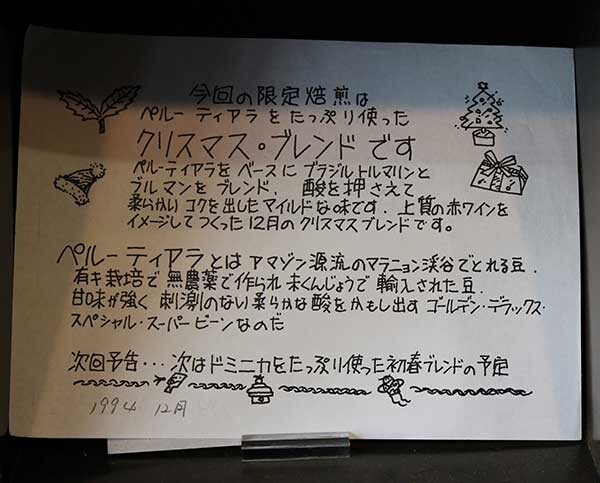 今回の限定焙煎は
ペルーティアラをたっぷり使った
クリスマス・ブレンドです
ペルーティアラをベースにブラジルトルマリンと
ブルマンをブレンド. 酸を押さえて
柔らかいコクを出したマイルドな味です. 上質の赤ワインを
イメージしてつくった12月のクリスマスブレンドです。
ペルーティアラとはアマゾン源流のマラニョン渓谷でとれる豆.
有キ栽培で無農薬で作られ未くんじょうで輸入された豆.
甘味が強く刺激のない柔らかな酸をかもし出すゴールデン・デラックス・
スペシャル・スーパービーンなのだ
次回予告・・・次はドミニカをたっぷり使った初春ブレンドの予定
1994 12月